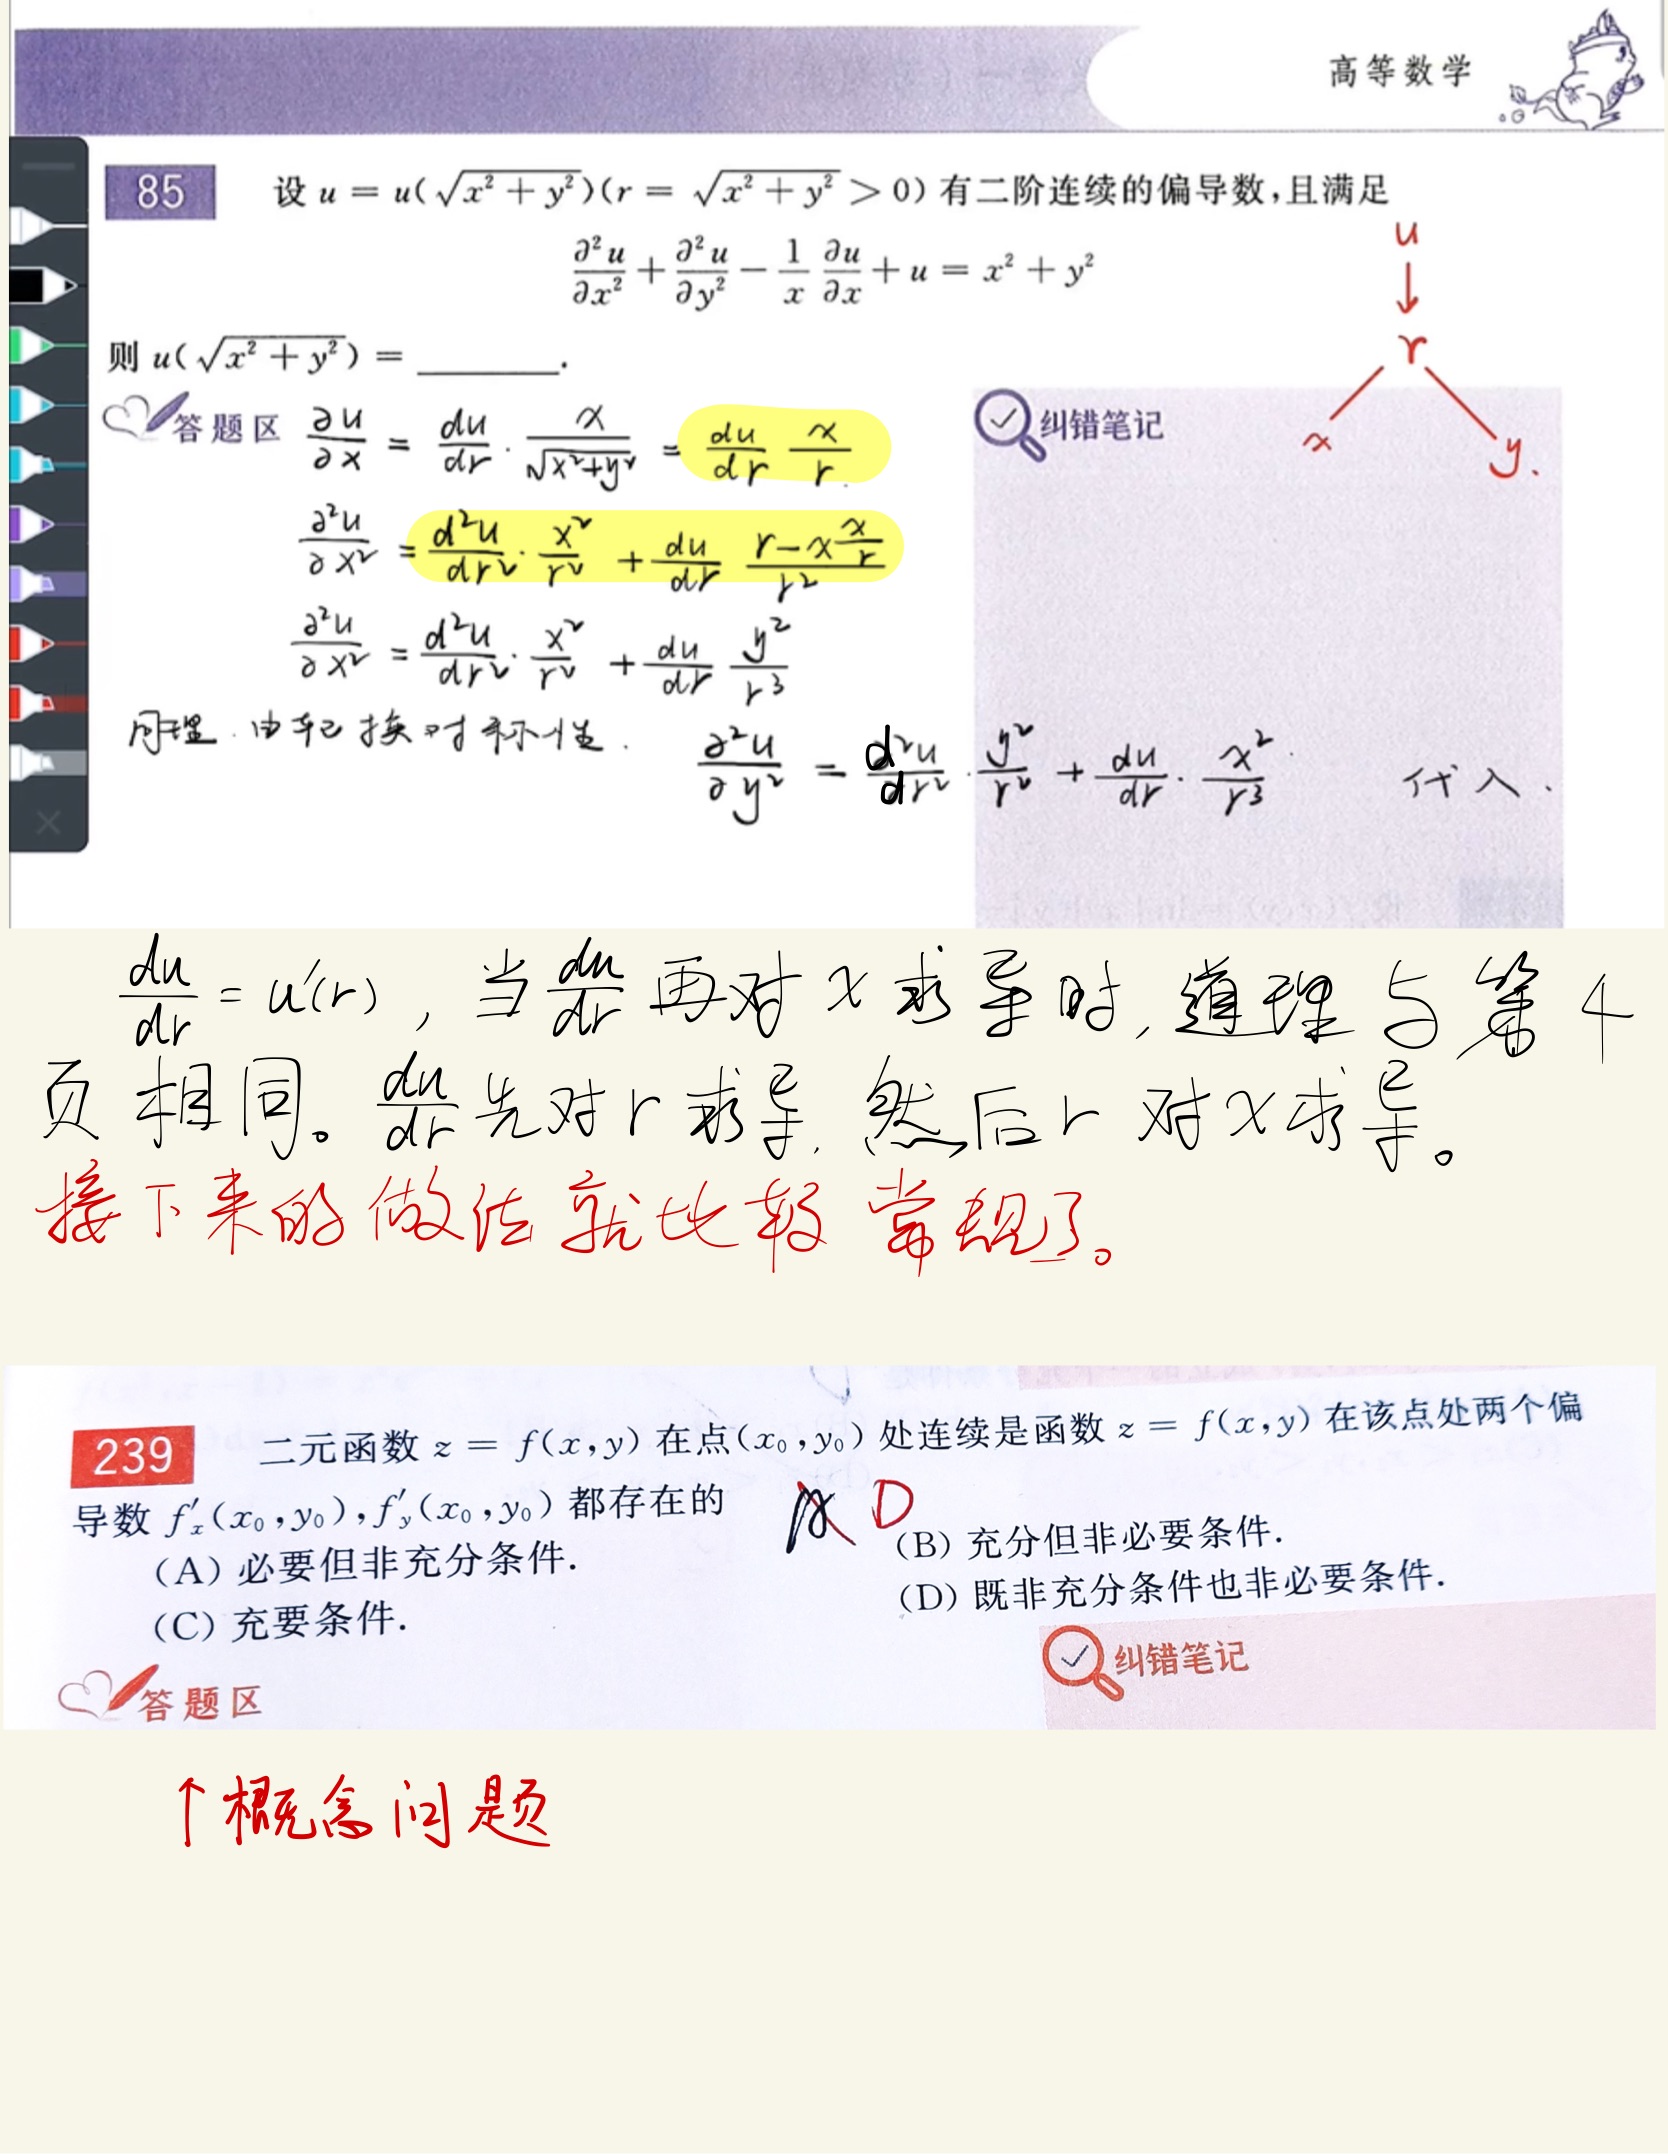 高等数学
85 设 u = u(√(x² + y²))(r = √(x² + y²) > 0) 有二阶连续的偏导数,且满足
∂²u/∂x² + ∂²u/∂y² − 1/x ∂u/∂x + u = x² + y²
则 u(√(x² + y²)) = ______.
u
↓
r
x y.
答题区 ∂u/∂x = du/dr · x/√(x²+y²) = du/dr x/r
纠错笔记
∂²u/∂x² = d²u/dr² · x²/r² + du/dr (r−x x/r)/r²
∂²u/∂x² = d²u/dr² · x²/r² + du/dr y²/r³
同理. 由轮换对称性. ∂²u/∂y² = d²u/dr² · y²/r² + du/dr · x²/r³ 代入.
du/dr = u'(r), 当 du/dr 再对 x 求导时, 道理与第4
页相同。du/dr 先对 r 求导, 然后 r 对 x 求导。
接下来的做法就比较常规了。
239 二元函数 z = f(x,y) 在点(x₀,y₀) 处连续是函数 z = f(x,y) 在该点处两个偏
导数 f′ₓ(x₀,y₀),f′ᵧ(x₀,y₀) 都存在的 D
(A) 必要但非充分条件. (B) 充分但非必要条件.
(C) 充要条件. (D) 既非充分条件也非必要条件.
答题区 纠错笔记
↑概念问题